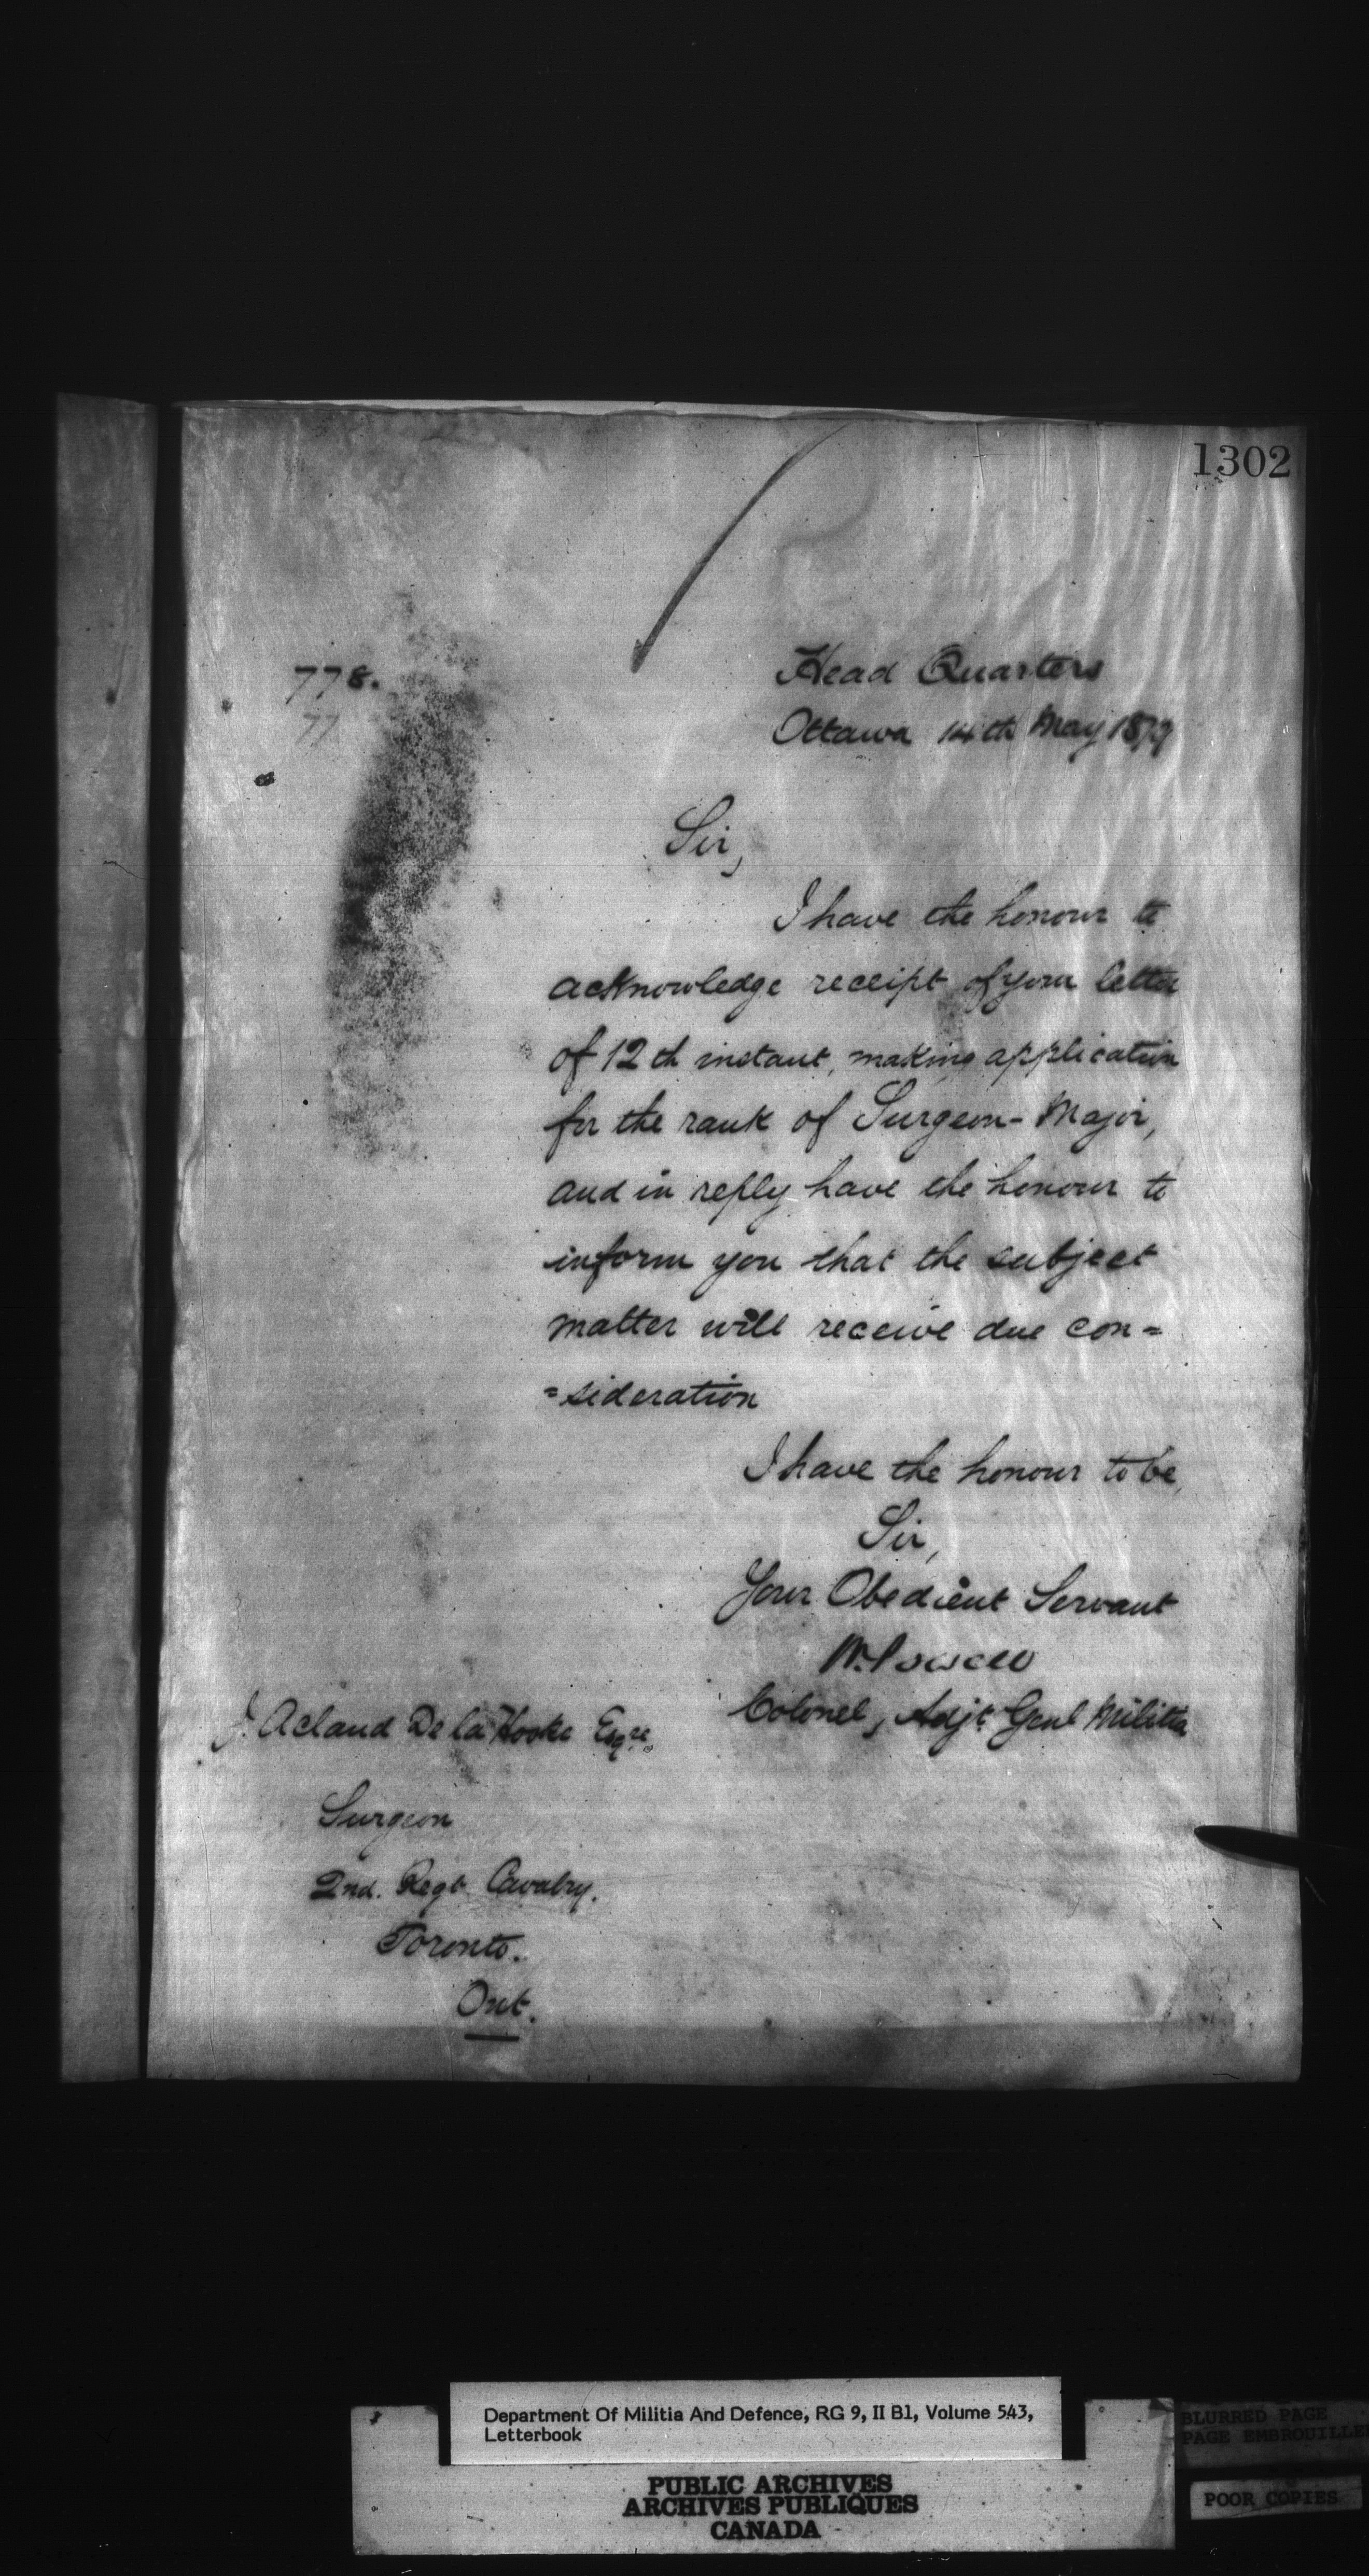 1302
778.
77
Head Quarters
Ottawa 14th May 1879
Sir,
I have the honour to
acknowledge receipt of your letter
of 12th instant, making application
for the rank of Surgeon-Major,
and in reply have the honour to
inform you that the subject
matter will receive due con=
=sideration
I have the honour to be,
Sir,
Your Obedient Servant
W. Powell
Colonel, Adjt. Genl Militia
J. Acland De la Hooke Esqre.
Surgeon
2nd. Regt Cavalry.
Toronto.
Ont.
Department Of Militia And Defence, RG 9, II B1, Volume 543,
Letterbook
PUBLIC ARCHIVES
ARCHIVES PUBLIQUES
CANADA
BLURRED PAGE
PAGE EMBROUILLE
POOR COPIES